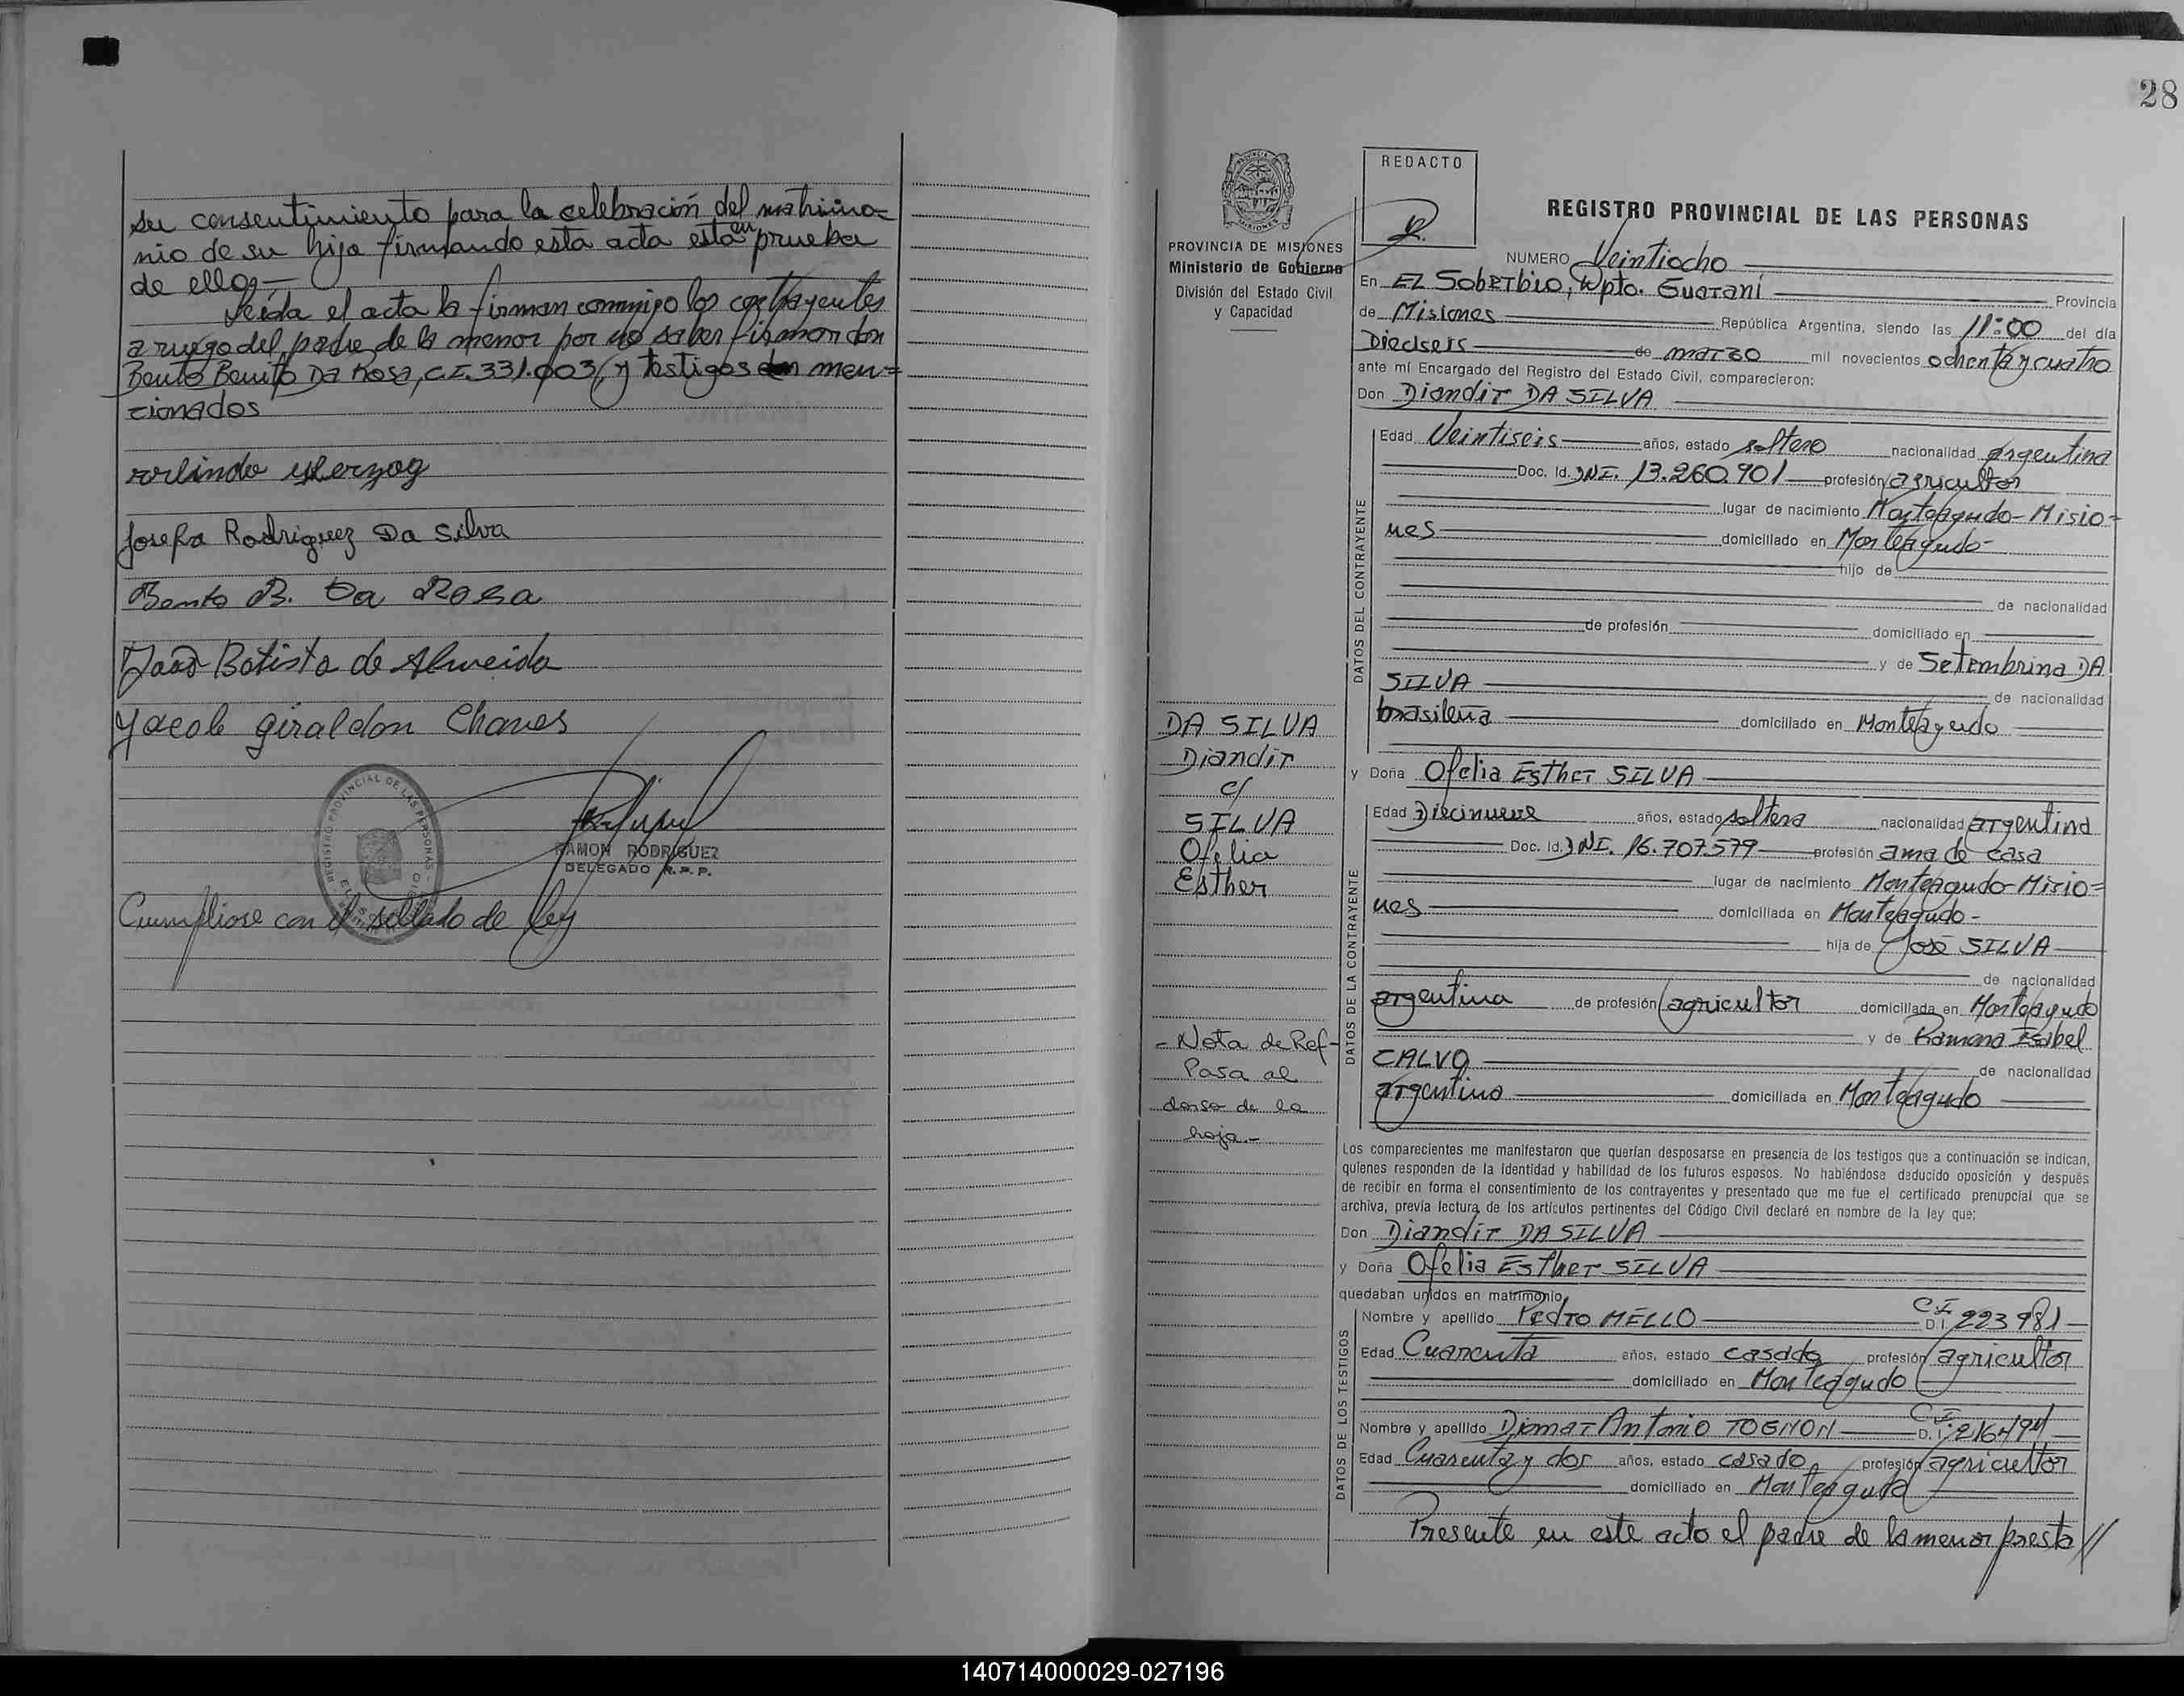 su consentimiento para la celebración del matrimo=
nio de su hija firmando esta acta esta en prueba
de ello.—
Leída el acta la firman conmigo los contrayentes
a ruego del padre de la menor por no saber firmar don
Bento Benito Da Rosa, C.I. 331.003, y testigos men=
cionados
orlindo Herzog
Josefa Rodriguez Da Silva
Bento B. Da Rosa
Joao Batista de Almeida
Jacob giraldon Chaves
REGISTRO PROVINCIAL DE LAS PERSONAS
RAMON RODRIGUEZ
DELEGADO R.P.P.
Cumpliose con el sellado de ley
28
PROVINCIA DE MISIONES
Ministerio de Gobierno
División del Estado Civil
y Capacidad
REDACTO
REGISTRO PROVINCIAL DE LAS PERSONAS
NUMERO Veintiocho
En EL SobErbio, Dpto. Guaraní Provincia
de Misiones República Argentina, siendo las 11:00 del día
Dieciseis de marzo mil novecientos ochenta y cuatro
ante mí Encargado del Registro del Estado Civil, comparecieron:
Don Diandir DA SILVA
DATOS DEL CONTRAYENTE
Edad Veintiseis años, estado soltero nacionalidad argentina
Doc. Id. DNI. 13.260.901 profesión agricultor
lugar de nacimiento Monteagudo-Misio=
nes domiciliado en Monteagudo-
hijo de
de nacionalidad
de profesión domiciliado en
y de Setembrina DA
SILVA de nacionalidad
brasileña domiciliado en Monteagudo
DA SILVA
Diandir
c/
SILVA
Ofelia
Esther
y Doña Ofelia Esther SILVA
DATOS DE LA CONTRAYENTE
Edad Diecinueve años, estado soltera nacionalidad argentina
Doc. Id. DNI. 16.707.579 profesión ama de casa
lugar de nacimiento Monteagudo-Misio=
nes domiciliada en Monteagudo-
hija de José SILVA
de nacionalidad
argentina de profesión agricultor domiciliada en Monteagudo
y de Ramona Isabel
CALVO de nacionalidad
argentina domiciliada en Monteagudo
- Nota de Ref-
Pasa al
dorso de la
hoja.-
Los comparecientes me manifestaron que querían desposarse en presencia de los testigos que a continuación se indican,
quienes responden de la identidad y habilidad de los futuros esposos. No habiéndose deducido oposición y después
de recibir en forma el consentimiento de los contrayentes y presentado que me fue el certificado prenupcial que se
archiva, previa lectura de los artículos pertinentes del Código Civil declaré en nombre de la ley que:
Don Diandir DA SILVA
y Doña Ofelia Esther SILVA
quedaban unidos en matrimonio
DATOS DE LOS TESTIGOS
Nombre y apellido Pedro MELLO C.I. D.I. 223981
Edad Cuarenta años, estado casado profesión agricultor
domiciliado en Monteagudo
Nombre y apellido Antonio TOGNON C.I. D.I.
Edad Cuarenta y dos años, estado casado profesión agricultor
domiciliado en Monteagudo
Presente en este acto el padre de la menor presta //
140714000029-027196